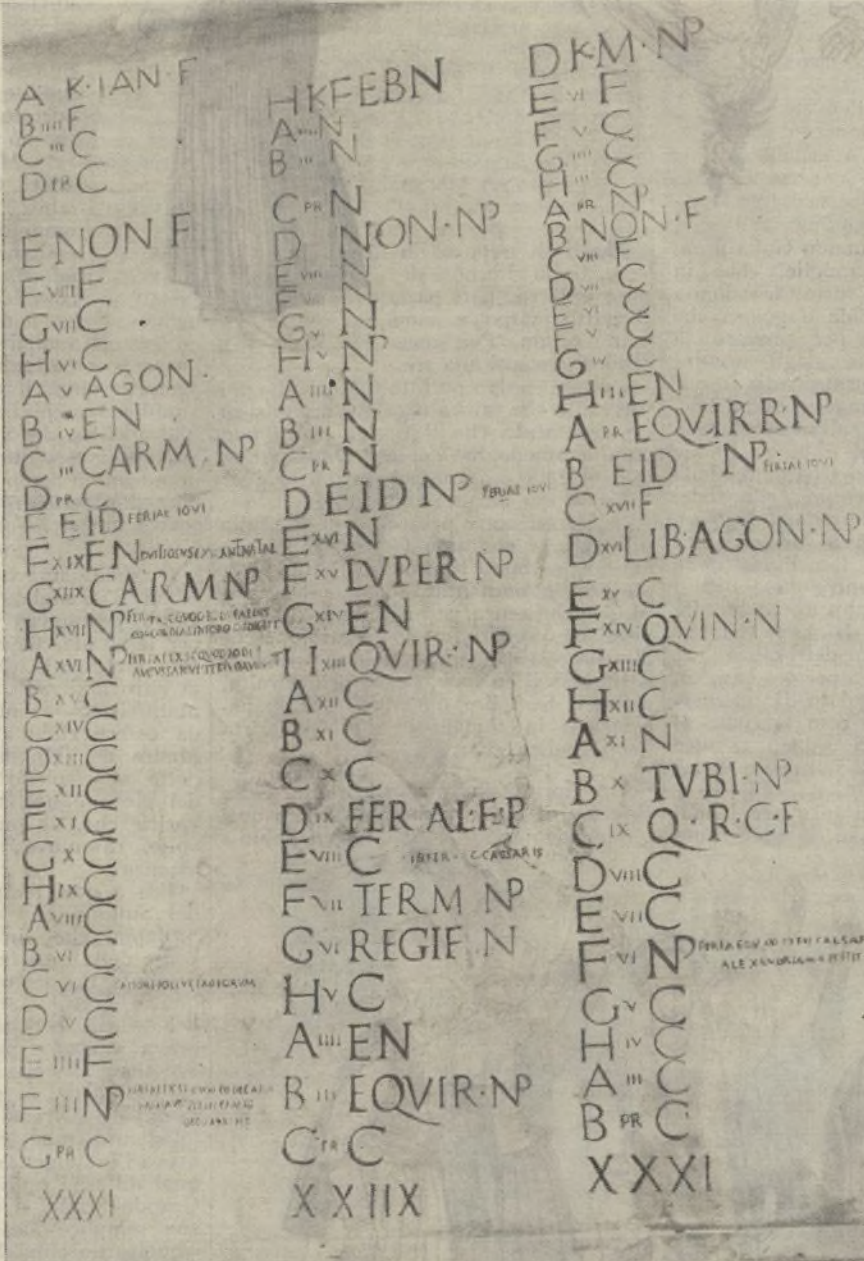 A K·IAN·F
B IIII F
C III C
D PR C
E NON F
F VIII F
G VII C
H VI C
A V AGON·
B IV EN
C III CARM·NP
D PR C
E EID FERIAE IOVI
F XIX EN
G XIIX CARM NP
H XVII NP
A XVI NP
B XV C
C XIV C
D XIII C
E XII C
F XI C
G X C
H IX C
A VIII C
B VI C
C VI C
D V C
E IIII F
F III NP
G PR C
XXXI
H K FEB N
A IIII N
B III N
C PR N
D NON·NP
E VIII N
F N
G V N
H IV NP
A IIII N
B III N
C PR N
D EID NP FERIAE IOVI
E XVI N
F XV LVPER NP
G XIV EN
H XIII QVIR·NP
A XII C
B XI C
C X C
D IX FERALF·P
E VIII C INFER· C CAESARIS
F VII TERM NP
G VI REGIF N
H V C
A IIII EN
B III EQVIR·NP
C PR C
XXIIX
D K·M·NP
E VI F
F V C
G IIII C
H III C
A PR NP
B NON·F
C VIII F
D VII C
E VI C
F V C
G IV C
H III EN
A PR EQVIRR·NP
B EID NP FERIAE IOVI
C XVII F
D XVI LIB·AGON·NP
E XV C
F XIV QVIN·N
G XIII C
H XII C
A XI N
B X TVBI·NP
C IX Q·R·C·F
D VIII C
E VII C
F VI NP
G V C
H IV C
A III C
B PR C
XXXI